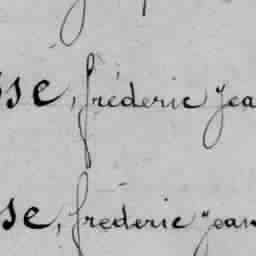 sse, frédéric Jea
se, fréderic Jean